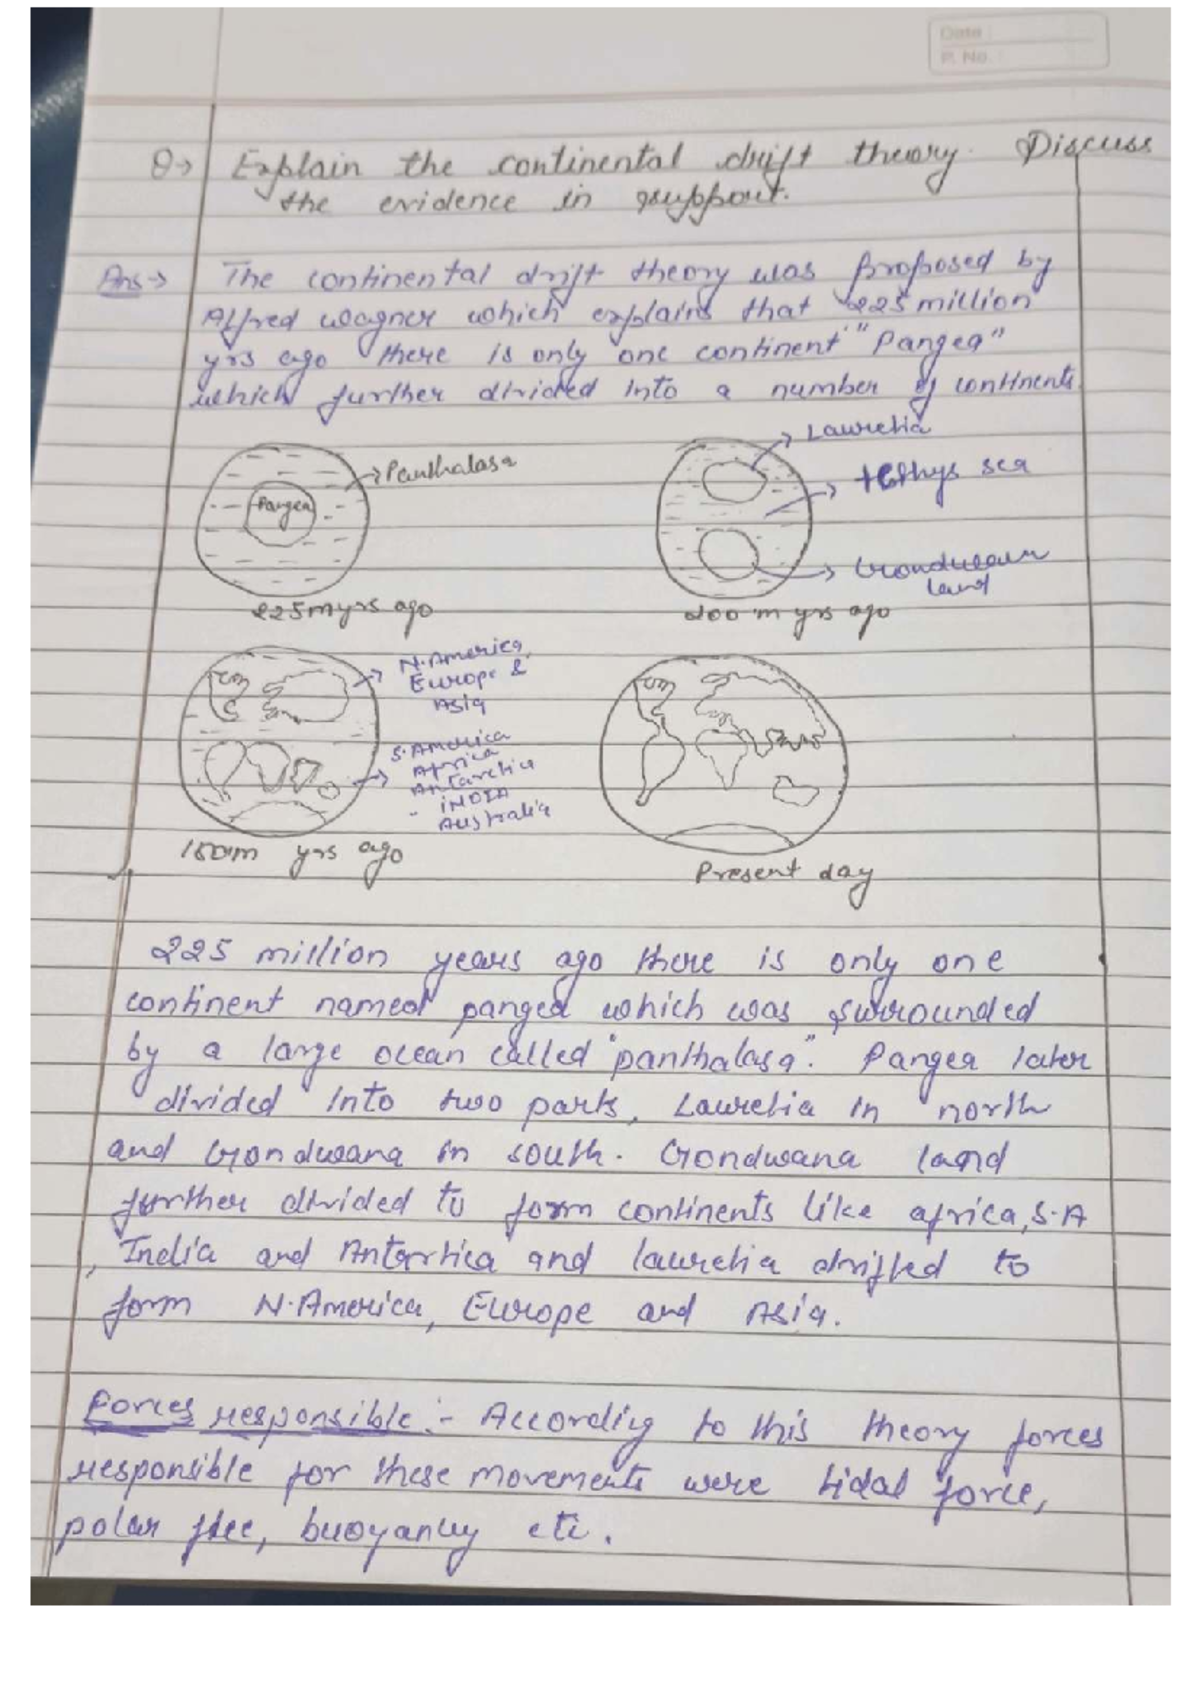 Date :
P. No. :
Q→ Explain the continental drift theory. Discuss
the evidence in support.
Ans→ The continental drift theory was proposed by
Alfred wagner which explains that 225 million
yrs ago there is only one continent "Pangea"
which further divided into a number of continents
→Panthalasa
Pangea
225myrs ago
→ Lauretia
→ tethys sea
→ Gondwaan
land
200 m yrs ago
→ N.America,
Europe &
Asia
→ S.America
Africa
Antarctia
- INDIA
Australia
150m yrs ago
Present day
225 million years ago there is only one
continent named pangea which was surrounded
by a large ocean called "panthalasa". Pangea later
divided into two parts, Lauretia in north
and Gondwana in south. Gondwana land
further divided to form continents like africa, S.A
, India and Antartica and lauretia drifted to
form N.America, Europe and Asia.
Forces responsible:- According to this theory forces
responsible for these movements were tidal force,
polar flee, buoyancy etc.